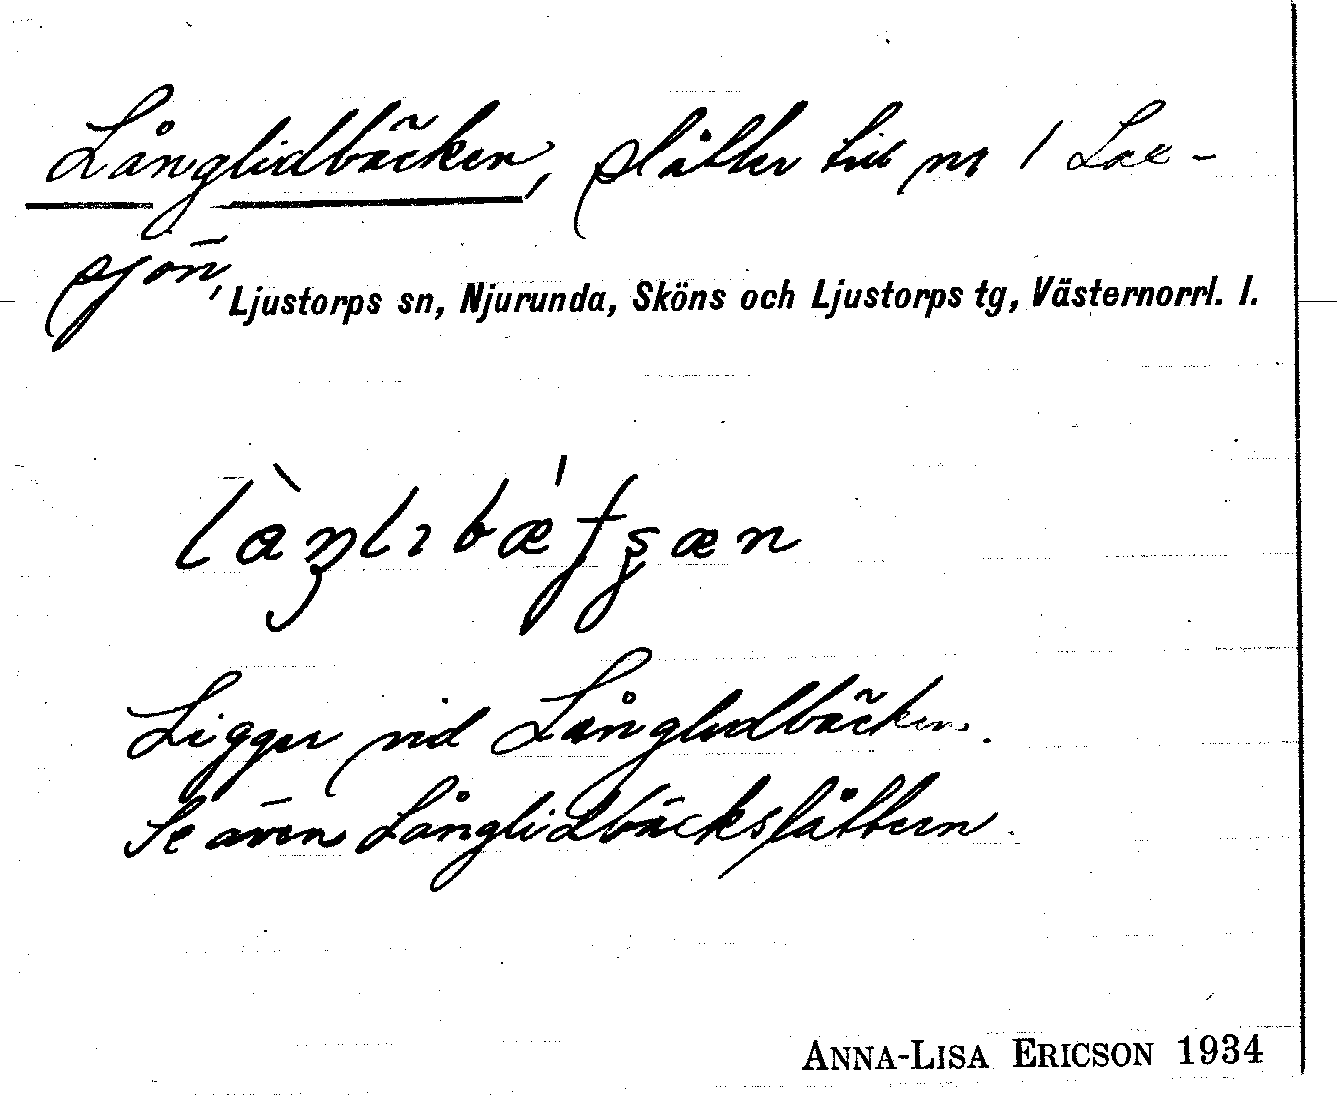 Långlidbäcken, slåtter till nr 1 Lax-
sjön, Ljustorps sn, Njurunda, Sköns och Ljustorps tg, Västernorrl. l.
Ligger vid Långlidbäcken.
Se även Långlidbäckslåttern.
ANNA-LISA ERICSON 1934